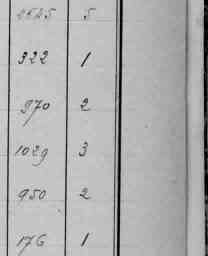 2625 5
322 1
970 2
1029 3
950 2
176 1